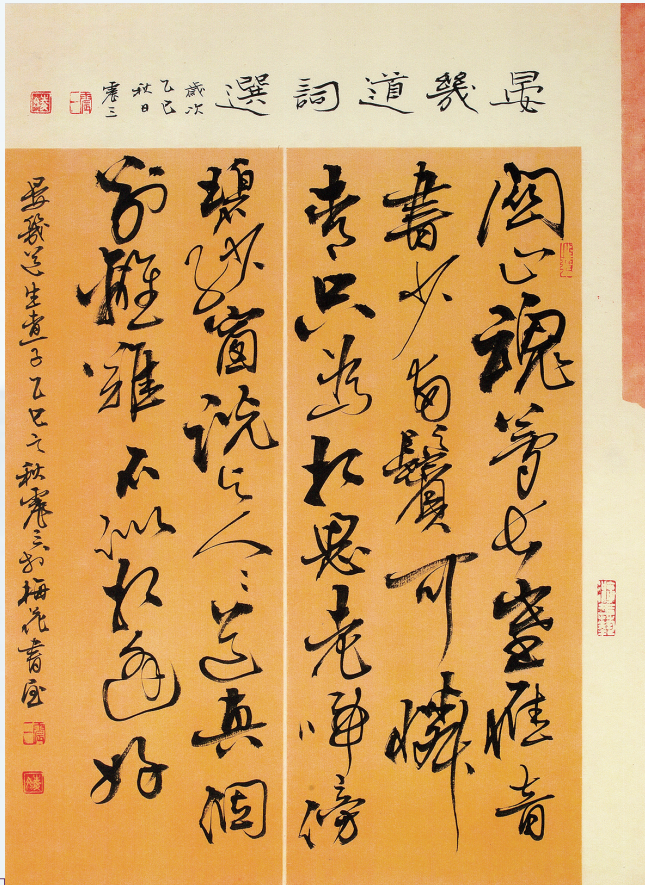 晏幾道詞選
歲次
乙巳
秋日
震三
關山魂夢長塞雁音
書少兩鬢可憐
青只為相思老歸傍
碧紗窗說與人人道真個
別離難不似相逢好
晏幾道生查子乙巳之秋震三於梅花書屋